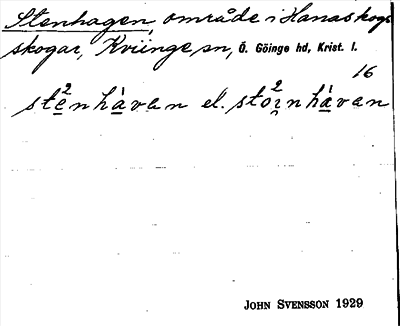 Stenhagen, område i Hanaskogs
skogar, Kviinge sn, Ö. Göinge hd, Krist. l.
16
ste²nhàvan el. stoi²nhàvan
JOHN SVENSSON 1929